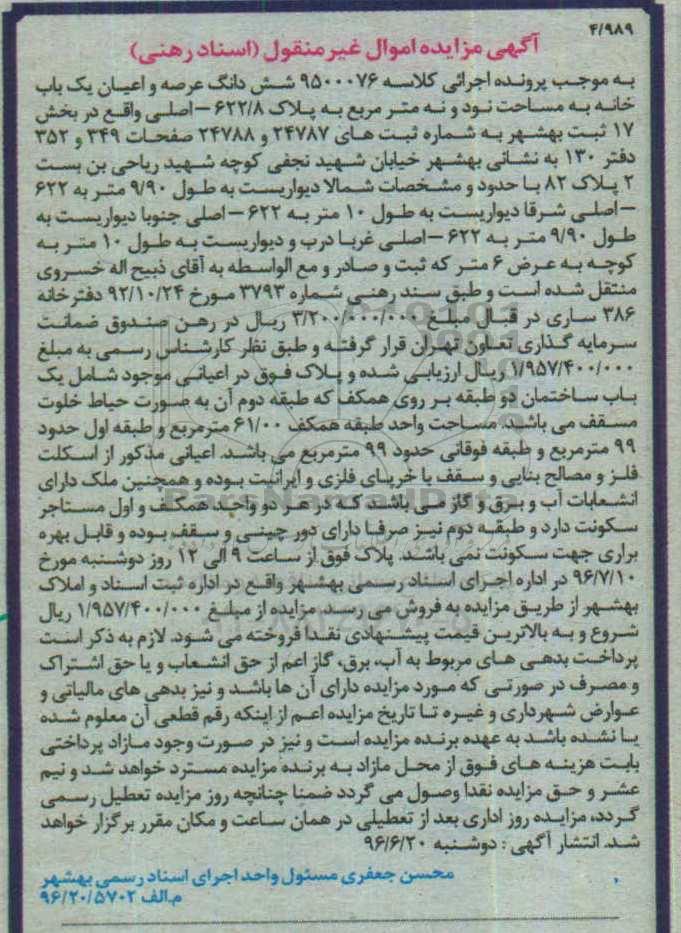 ۴/۹۸۹
آگهی مزایده اموال غیر منقول (اسناد رهنی)
به موجب پرونده اجرائی کلاسه ۹۵۰۰۰۷۶ شش دانگ عرصه و اعیان یک باب
خانه به مساحت نود و نه متر مربع به پلاک ۶۲۲/۸ –اصلی واقع در بخش
۱۷ ثبت بهشهر به شماره ثبت های ۲۴۷۸۷ و ۲۴۷۸۸ صفحات ۳۴۹ و ۳۵۲
دفتر ۱۳۰ به نشانی بهشهر خیابان شهید نجفی کوچه شهید ریاحی بن بست
۲ پلاک ۸۲ با حدود و مشخصات شمالا دیواریست به طول ۹/۹۰ متر به ۶۲۲
– اصلی شرقا دیواریست به طول ۱۰ متر به ۶۲۲ – اصلی جنوبا دیواریست به
طول ۹/۹۰ متر به ۶۲۲ –اصلی غربا درب و دیواریست به طول ۱۰ متر به
کوچه به عرض ۶ متر که ثبت و صادر و مع الواسطه به آقای ذبیح اله خسروی
منتقل شده است و طبق سند رهنی شماره ۳۷۹۳ مورخ ۹۲/۱۰/۲۴ دفترخانه
۳۸۶ ساری در قبال مبلغ ۳/۲۰۰/۰۰۰/۰۰۰ ریال در رهن صندوق ضمانت
سرمایه گذاری تعاون تهران قرار گرفته و طبق نظر کارشناس رسمی به مبلغ
۱/۹۵۷/۴۰۰/۰۰۰ ریال ارزیابی شده و پلاک فوق در اعیانی موجود شامل یک
باب ساختمان دو طبقه بر روی همکف که طبقه دوم آن به صورت حیاط خلوت
مسقف می باشد. مساحت واحد طبقه همکف ۶۱/۰۰ مترمربع و طبقه اول حدود
۹۹ مترمربع و طبقه فوقانی حدود ۹۹ مترمربع می باشد. اعیانی مذکور از اسکلت
فلز و مصالح بنایی و سقف با خرپای فلزی و ایرانیت بوده و همچنین ملک دارای
انشعابات آب و برق و گاز می باشند که در هر دو واحد همکف و اول مستاجر
سکونت دارد و طبقه دوم نیز صرفا دارای دور چینی و سقف بوده و قابل بهره
براری جهت سکونت نمی باشد. پلاک فوق از ساعت ۹ الی ۱۲ روز دوشنبه مورخ
۹۶/۷/۱۰ در اداره اجرای اسناد رسمی بهشهر واقع در اداره ثبت اسناد و املاک
بهشهر از طریق مزایده به فروش می رسد. مزایده از مبلغ ۱/۹۵۷/۴۰۰/۰۰۰ ریال
شروع و به بالاترین قیمت پیشنهادی نقدا فروخته می شود. لازم به ذکر است
پرداخت بدهی های مربوط به آب، برق، گاز اعم از حق انشعاب و یا حق اشتراک
و مصرف در صورتی که مورد مزایده دارای آن ها باشد و نیز بدهی های مالیاتی و
عوارض شهرداری و غیره تا تاریخ مزایده اعم از اینکه رقم قطعی آن معلوم شده
یا نشده باشد به عهده برنده مزایده است و نیز در صورت وجود مازاد پرداختی
بابت هزینه های فوق از محل مازاد به برنده مزایده مسترد خواهد شد و نیم
عشر و حق مزایده نقدا وصول می گردد ضمنا چنانچه روز مزایده تعطیل رسمی
گردد، مزایده روز اداری بعد از تعطیلی در همان ساعت و مکان مقرر برگزار خواهد
شد. انتشار آگهی : دوشنبه ۹۶/۶/۲۰
محسن جعفری مسئول واحد اجرای اسناد رسمی بهشهر
م.الف ۹۶/۲۰/۵۷۰۲